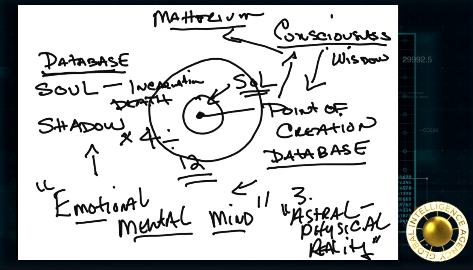 MATTORIUM
CONSCIOUSNESS
WISDOM
DATABASE
SOUL - INCARNATION
DEATH
SOL
29992.5
SHADOW
x 4 ÷
12
POINT OF
CREATION
DATABASE
"EMOTIONAL
MENTAL MIND"
3.
"ASTRAL-
PHYSICAL
REALITY"
GLOBAL INTELLIGENCE AGENCY